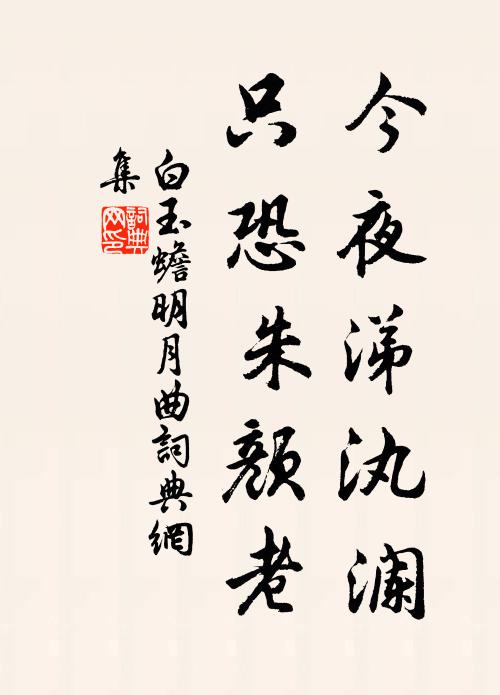 今夜涕汍澜
只恐朱颜老
白玉蟾明月曲詞典網
集
詞典网印